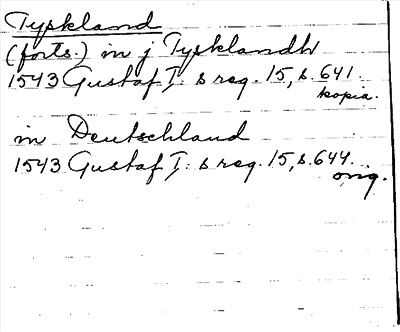 Tyskland
(forts.) in j Tysklandh
1543 Gustaf I:s reg. 15, s. 641.
kopia.
in Deutschland
1543 Gustaf I:s reg. 15, s. 644.
orig.